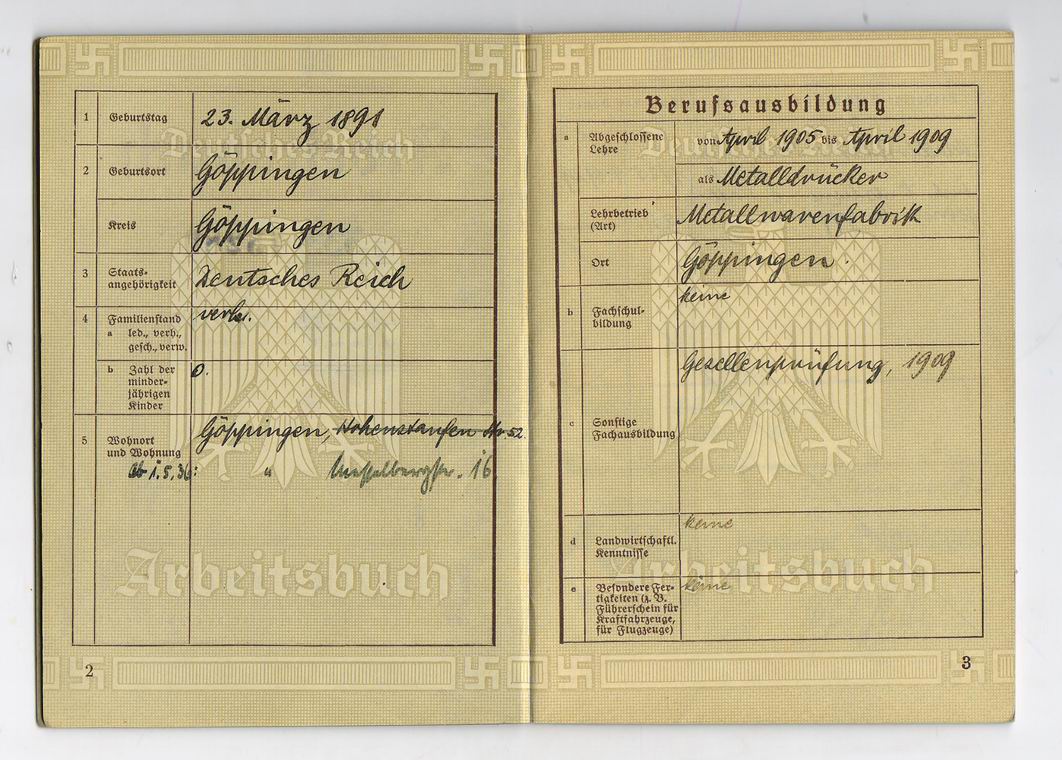 1 Geburtstag 23. März 1891
2 Geburtsort Göppingen
Kreis Göppingen
3 Staats-
angehörigkeit Deutsches Reich
4 Familienstand verh.
a led., verh.,
gesch., verw.
b Zahl der 0.
minder-
jährigen
Kinder
5 Wohnort Göppingen, Hohenstaufen Str. 52.
und Wohnung
Ab 1.5.36: " 16
Deutsches Reich
Arbeitsbuch
2
Berufsausbildung
a Abgeschlossene von April 1905 bis April 1909
Lehre
als Metalldrücker
Lehrbetrieb Metallwarenfabrik
(Art)
Ort Göppingen.
b Fachschul- keine
bildung
Gesellenprüfung, 1909
c Sonstige
Fachausbildung
d Landwirtschaftl. keine
Kenntnisse
e Besondere Fer- keine
tigkeiten (z. B.
Führerschein für
Kraftfahrzeuge,
für Flugzeuge)
Deutsches Reich
Arbeitsbuch
3